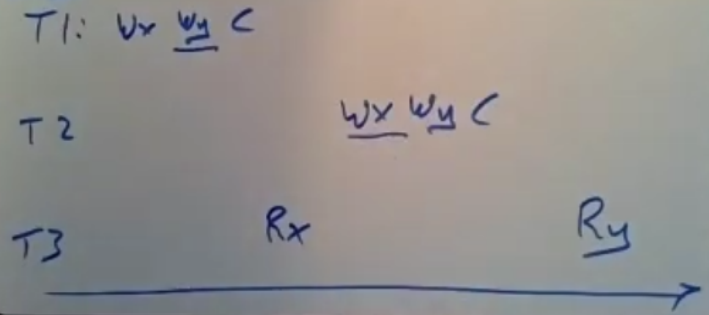 T1: Wx Wy C
T2 Wx Wy C
T3 Rx Ry